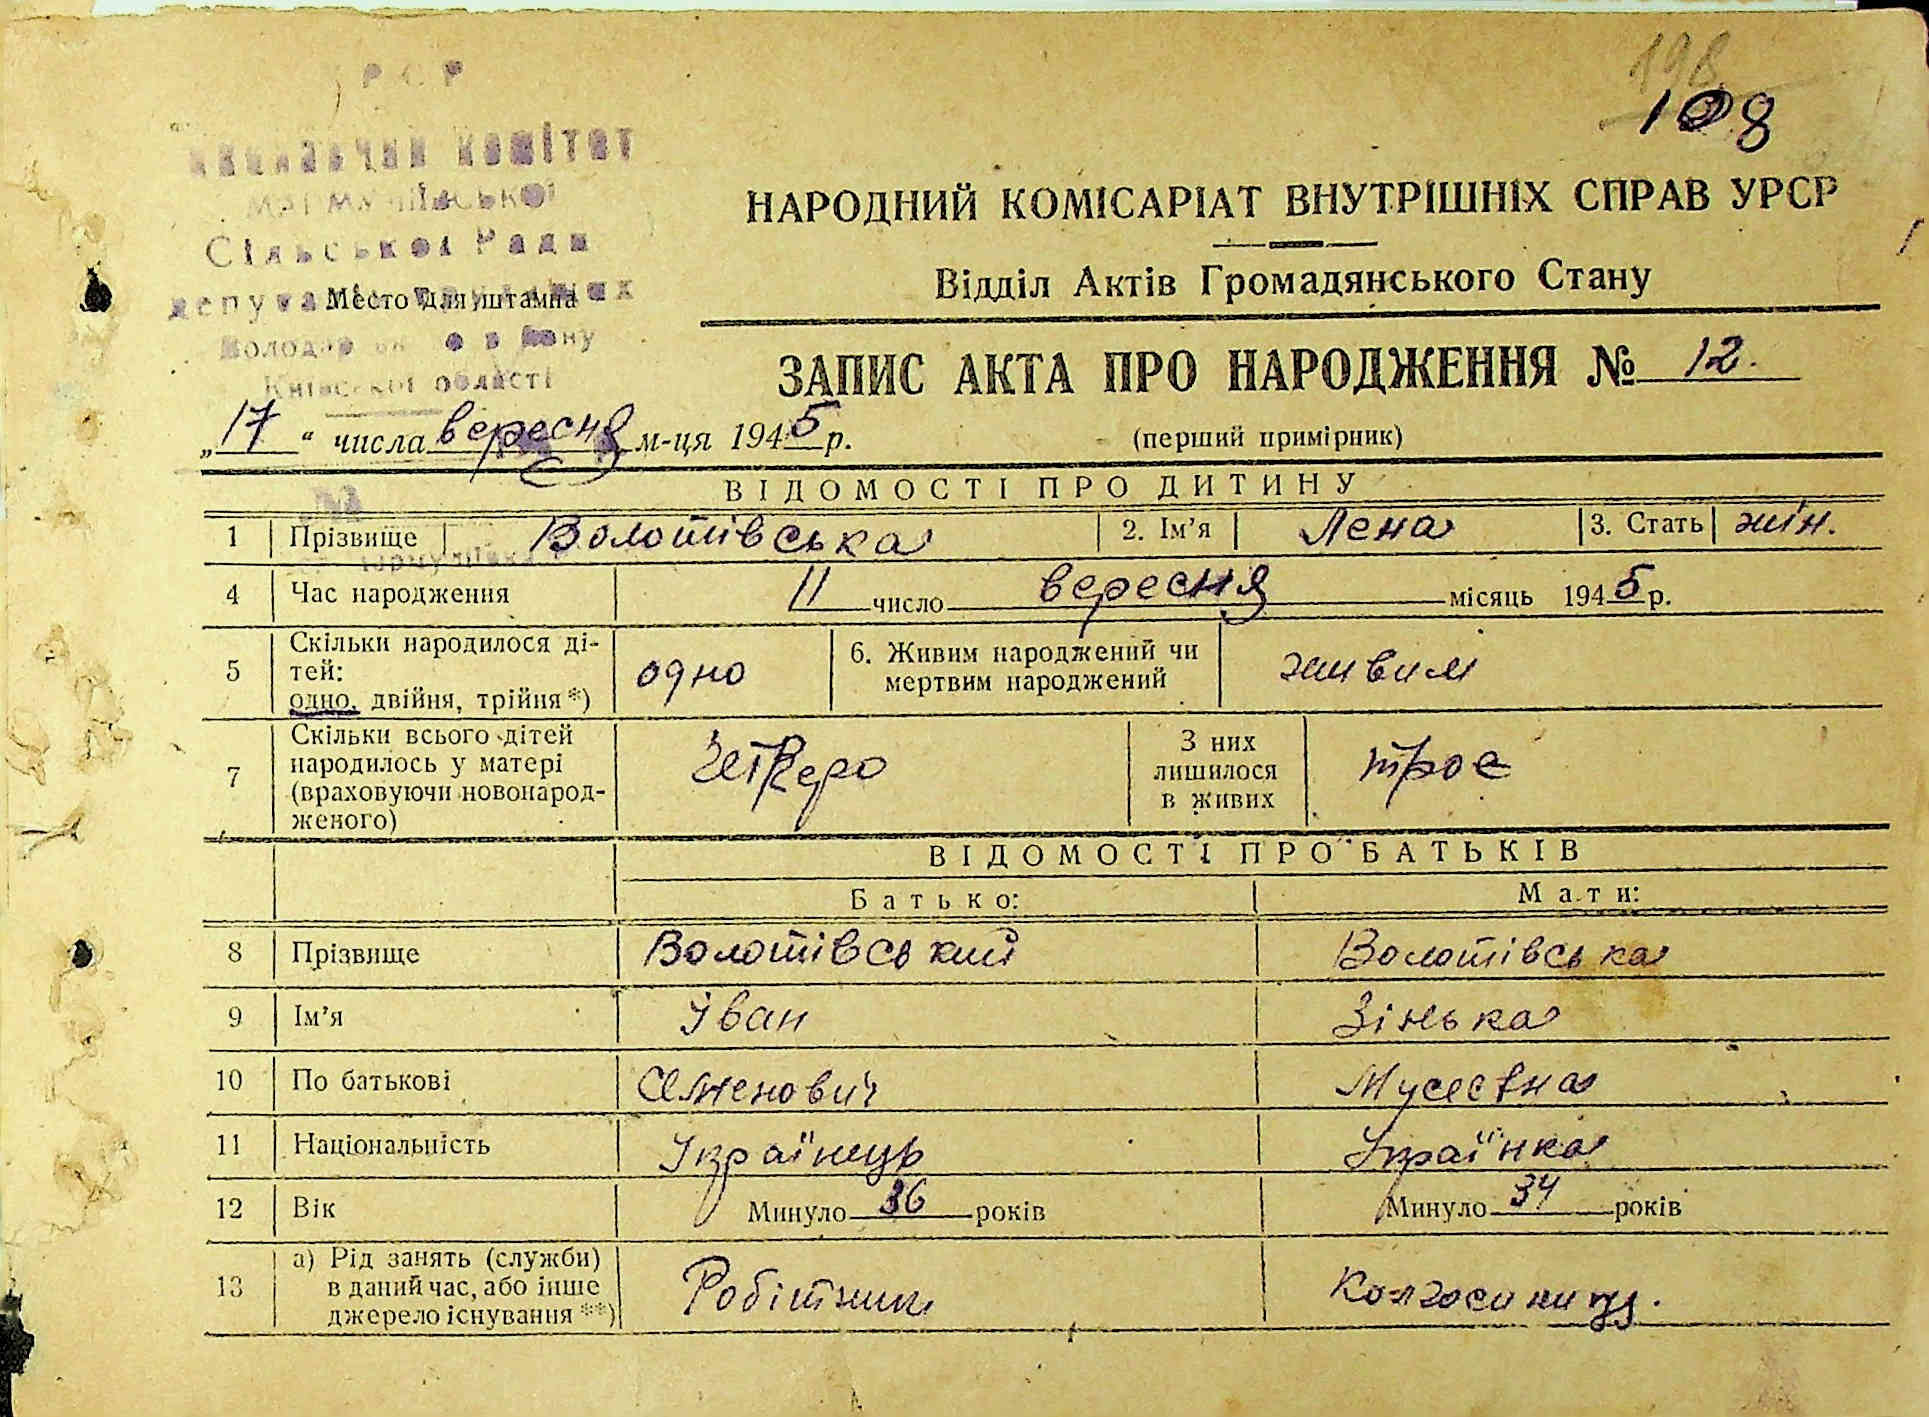 РСР
198
108
Виконавчий комітет
НАРОДНИЙ КОМІСАРІАТ ВНУТРІШНІХ СПРАВ УРСР
Сільської Ради
Відділ Актів Громадянського Стану
Место для штампа
Київської області
ЗАПИС АКТА ПРО НАРОДЖЕННЯ № 12.
„17“ числа вересня м-ця 1945 р.
(перший примірник)
ВІДОМОСТІ ПРО ДИТИНУ
1 Прізвище Волотівська 2. Ім’я Лена 3. Стать жін.
4 Час народження 11 число вересня місяць 1945 р.
5 Скільки народилося ді-
тей:
одно, двійня, трійня*) одно 6. Живим народжений чи
мертвим народжений живим
7 Скільки всього дітей
народилось у матері
(враховуючи новонарод-
женого) Четверо З них
лишилося
в живих троє
ВІДОМОСТІ ПРО БАТЬКІВ
Батько: Мати:
8 Прізвище Волотівський Волотівська
9 Ім’я Іван Зінька
10 По батькові Семенович Мусеєвна
11 Національність Українець Українка
12 Вік Минуло 36 років Минуло 34 років
13 а) Рід занять (служби)
в даний час, або інше
джерело існування **) Робітник Колгоспниця.